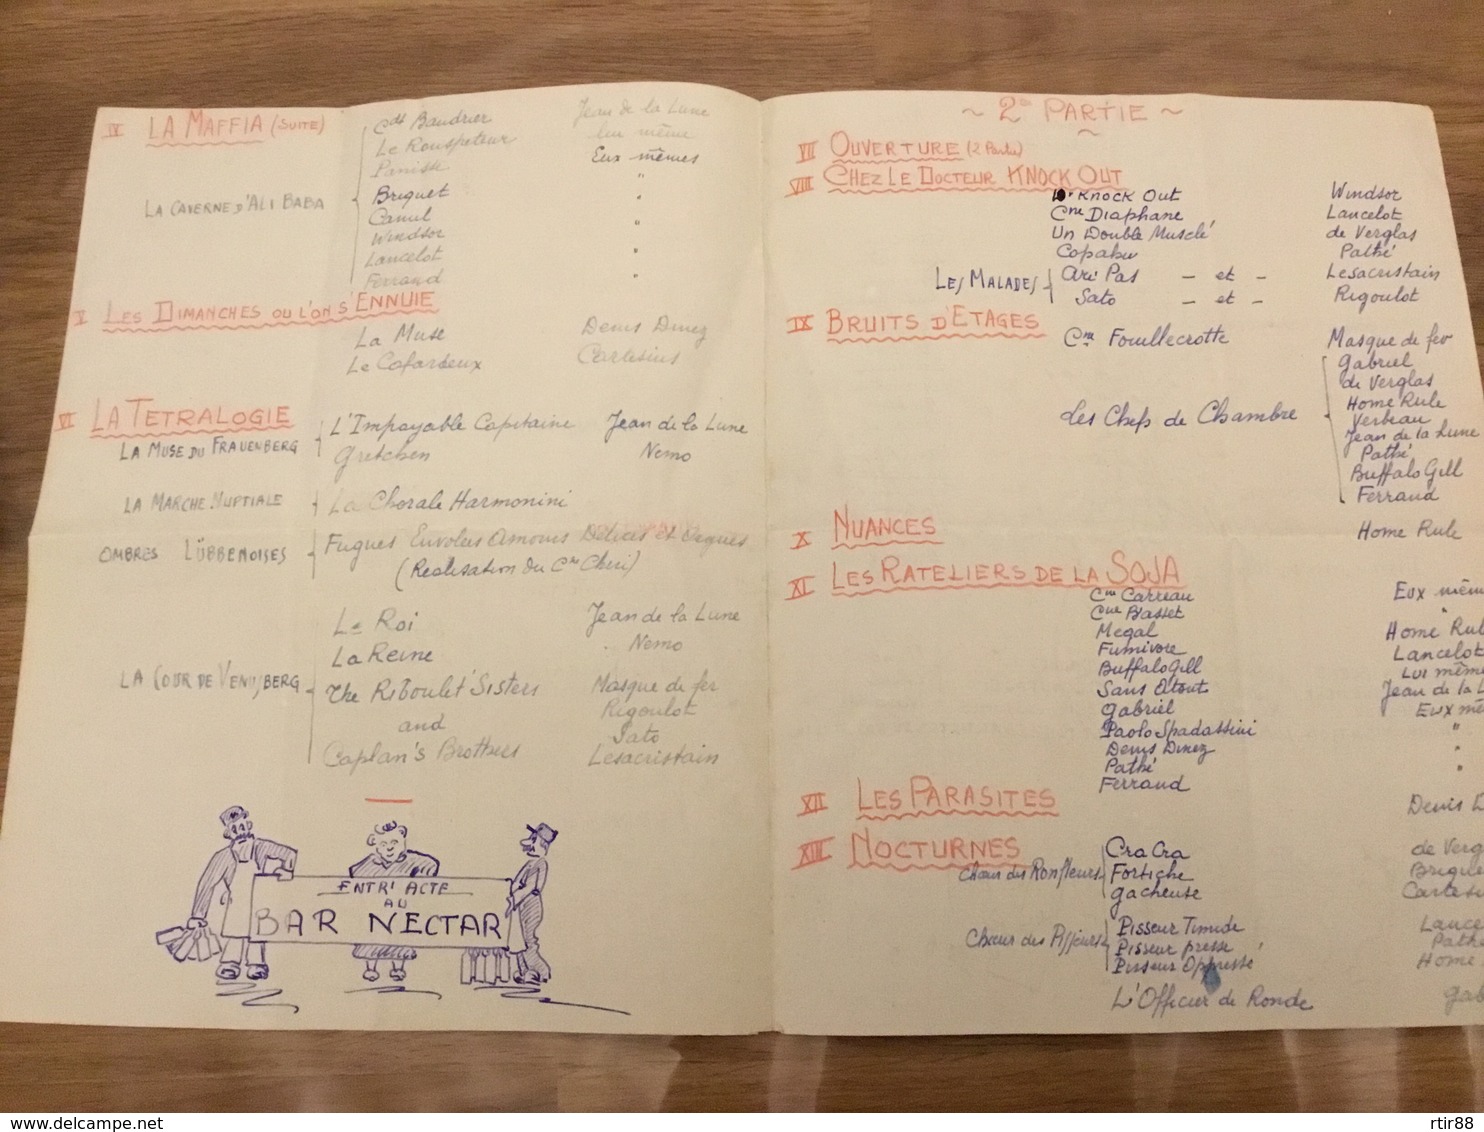 IV LA MAFFIA (SUITE)
LA CAVERNE D'ALI BABA
Cdt Baudrier Jean de la Lune
Le Rouspeteur lui même
Panisse Eux mêmes
Briquet "
Camul "
Windsor "
Lancelot "
Ferrand "
V LES DIMANCHES OU L'ON S'ENNUIE
La Muse Denis Dinez
Le Cafardeux Cartesius
VI LA TETRALOGIE
LA MUSE DU FRAUENBERG
L'Impayable Capitaine Jean de la Lune
Gretchen Nemo
LA MARCHE NUPTIALE La Chorale Harmonini
OMBRES LÜBBENOISES Fugues Envolées Amours Délices et Orgues
(Réalisation du Cne Chéri)
LA COUR DE VENUSBERG
Le Roi Jean de la Lune
La Reine Nemo
The Riboulet' Sisters Masque de fer
Rigoulot
and Sato
Caplan's Brothers Lesacristain
ENTR' ACTE
AU
BAR NECTAR
~ 2e PARTIE ~
~
VII OUVERTURE (2 Partie)
VIII CHEZ LE DOCTEUR KNOCK OUT
Dr KNOCK OUT Windsor
Cne Diaphane Lancelot
Un Double Musclé de Verglas
Copahu Pathé
LES MALADES
Ari Pas - et - Lesacristain
Sato - et - Rigoulot
IX BRUITS D'ETAGES
Cne Fouillecrotte Masque de fer
Les Chefs de Chambre
Gabriel
de Verglas
Home Rule
Verbeau
Jean de la Lune
Pathé
Buffalo Gill
Ferrand
X NUANCES Home Rule
XI LES RATELIERS DE LA SOJA
Cne Carreau Eux mêm
Cne Basset "
Megal Home Rul
Fumivore Lancelot
Buffalo Gill Lui même
Sans Atout Jean de la L
Gabriel Eux mê
Paolo Spadassini "
Denis Dinez "
Pathé "
Ferrand
XII LES PARASITES Denis D
XIII NOCTURNES
Chœur des Ronfleurs
Cra Cra de Verg
Fortiche Brique
Gacheuse Cartesi
Chœur des Pisseurs
Pisseur Timide Lance
Pisseur pressé Pathé
Pisseur Oppressé Home
L'Officier de Ronde Gab
delcampe.net
rtir88